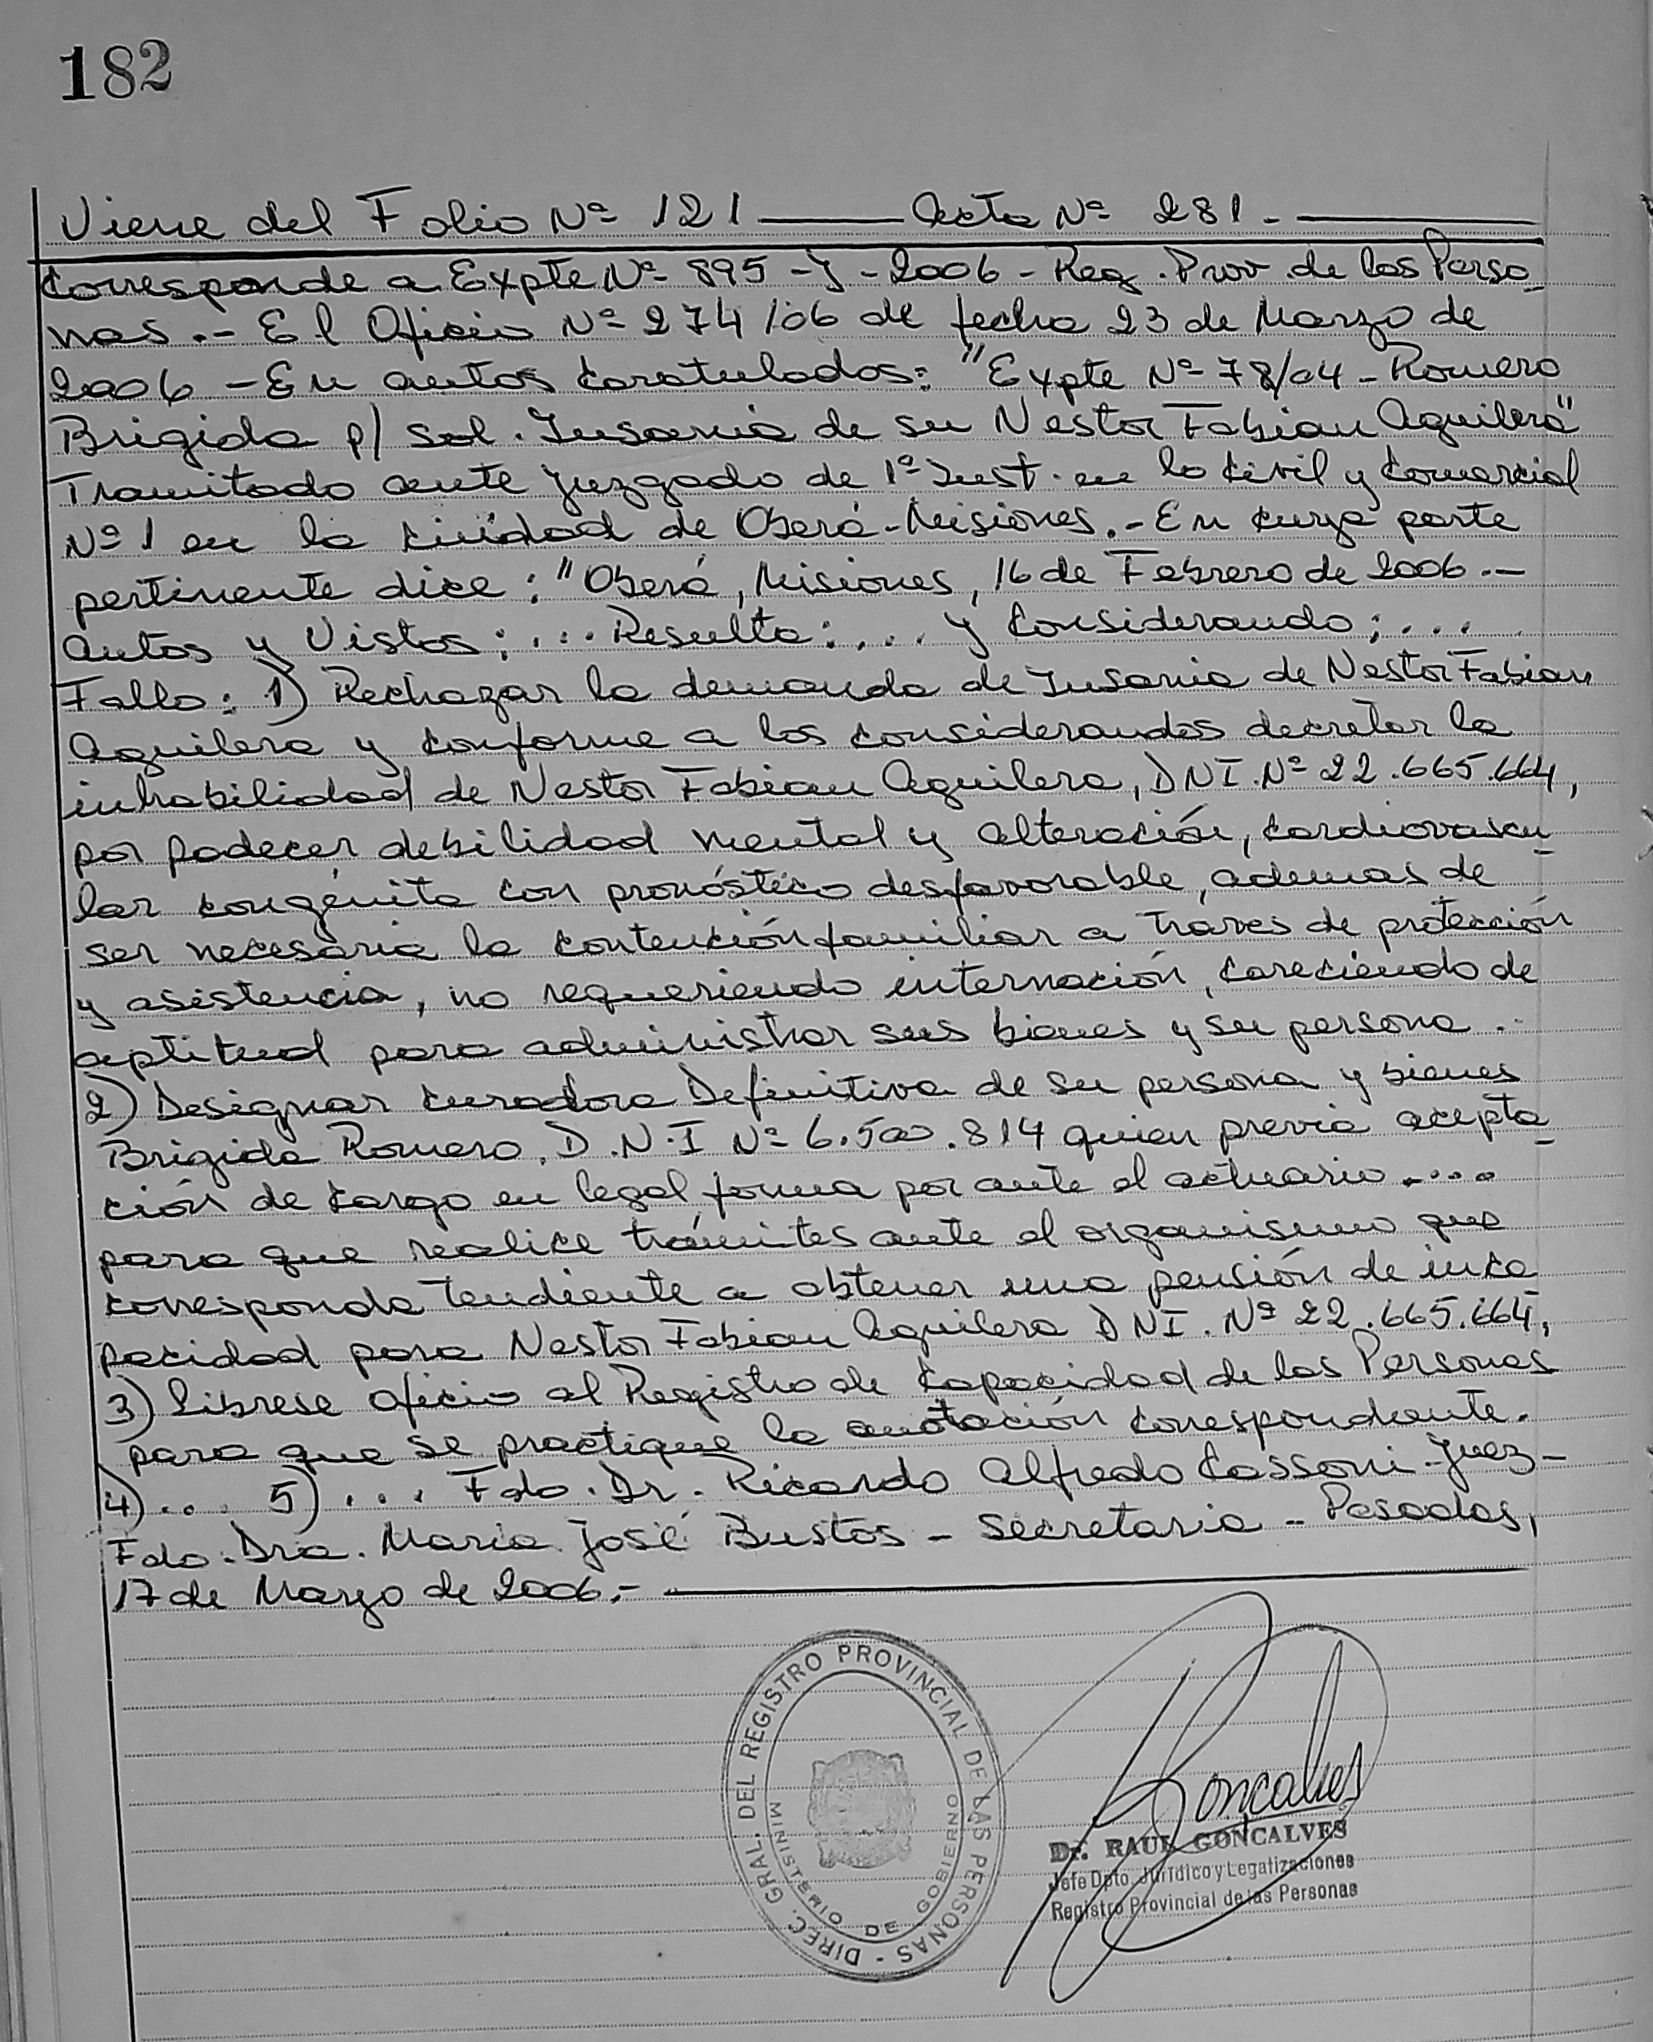 182
Viene del Folio Nº 121 —— Acta Nº 281.- ——
Corresponde a Expte Nº 895-J-2006- Reg. Prov. de las Perso_
nas.- El Oficio Nº 274/06 de fecha 23 de Marzo de
2006 - En autos caratulados: "Expte Nº 78/04 - Romero
Brigida p/ sol. Insania de su Nestor Fabian Aguilera"
Tramitado ante Juzgado de 1º Inst. en lo Civil y Comercial
Nº 1 en la ciudad de Oberá - Misiones.- En cuya parte
pertinente dice: "Oberá, Misiones, 16 de Febrero de 2006.-
Autos y Vistos: ... Resulta: ... y Considerando; ....
Fallo: 1) Rechazar la demanda de Insania de Nestor Fabian
Aguilera y conforme a los considerandos decretar la
inhabilidad de Nestor Fabian Aguilera, DNI. Nº 22.665.664,
por padecer debilidad mental y alteración, cardiovascu_
lar congénita con pronóstico desfavorable, ademas de
ser necesaria la contención familiar a traves de protección
y asistencia, no requeriendo internación, careciendo de
aptitud para administrar sus bienes y su persona.-
2) Designar curadora Definitiva de su persona y bienes
Brigida Romero. D.N.I Nº 6.500.814 quien previa acepta_
ción de cargo en legal forma por ante el actuario ....
para que realice trámites ante el organismo que
corresponda tendiente a obtener una pensión de inca_
pacidad para Nestor Fabian Aguilera DNI. Nº 22.665.664,
3) Librese oficio al Registro de Capacidad de las Personas
para que se practique la anotación correspondiente.
4) ... 5) .... Fdo. Dr. Ricardo Alfredo Cassoni - Juez -
Fdo. Dra. Maria José Bustos - Secretaria - Posadas,
17 de Marzo de 2006.- ——
DIREC. GRAL. DEL REGISTRO PROVINCIAL DE LAS PERSONAS -
MINISTERIO DE GOBIERNO
Gonçalves
Dr. RAUL GONÇALVES
Jefe Dpto. Jurídico y Legalizaciones
Registro Provincial de las Personas